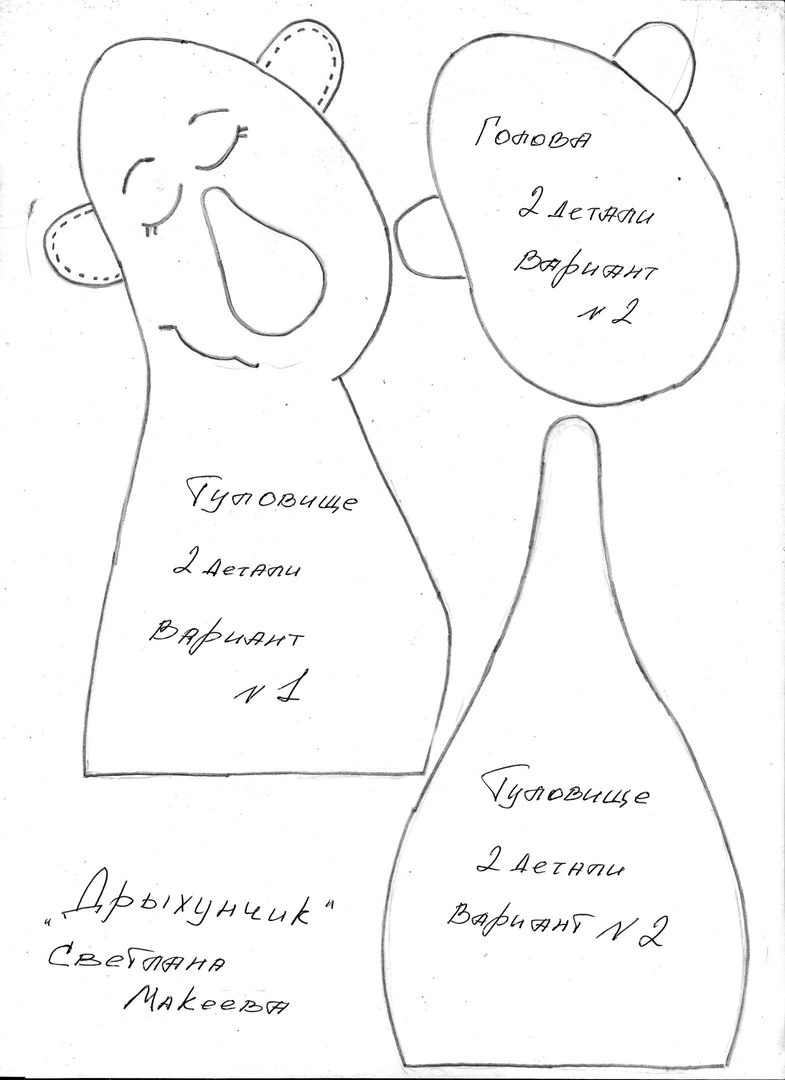 Голова
2 детали
Вариант
№ 2
Туловище
2 детали
Вариант
№ 1
Туловище
2 детали
Вариант № 2
"Дрыхунчик"
Светлана
Макеева